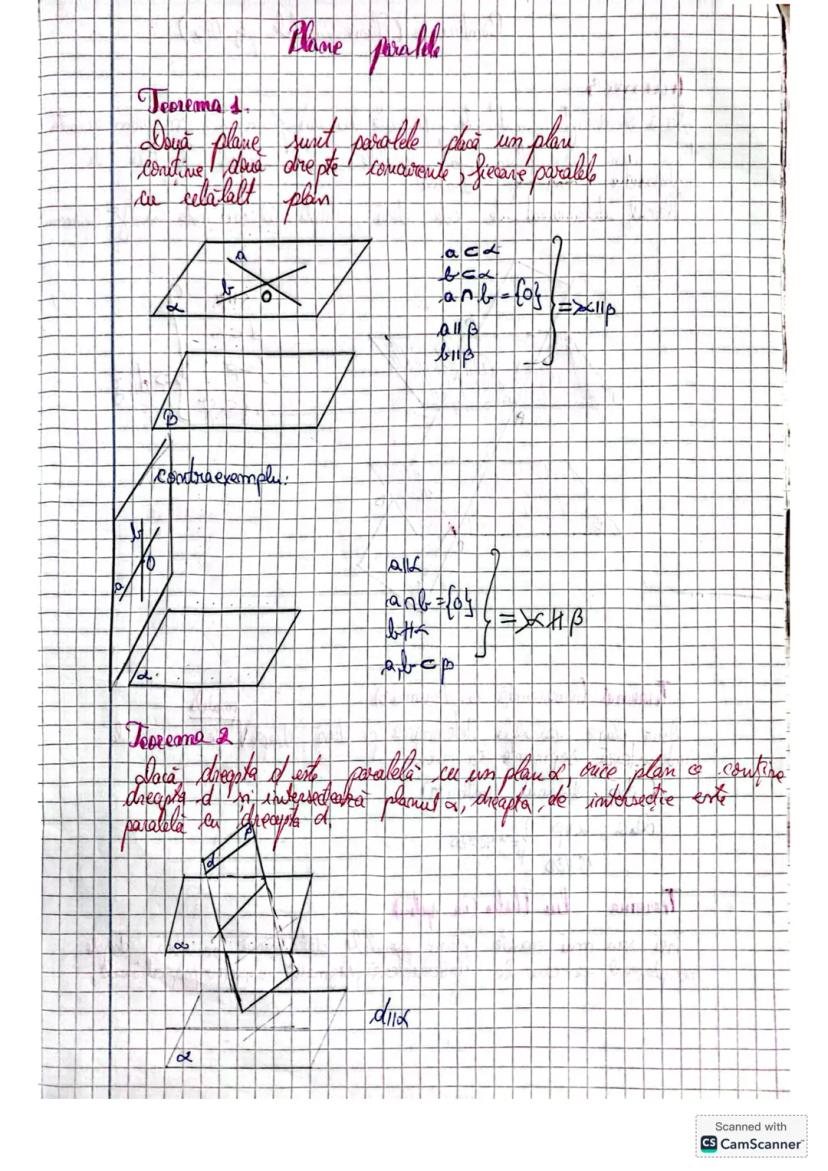 Plane paralele
Teorema 1.
Două plane sunt paralele dacă un plan
conține două drepte concurente, fiecare paralele
cu celălalt plan
a
b
O
α
a⊂α
b⊂α
a∩b={O}
a||β
b||β
=>α||β
β
contraexemplu:
b
O
a
α
a||α
a∩b={O}
b∦α
a,b⊂β
=>α∦β
Teorema 2
Dacă dreapta d este paralelă cu un plan α, orice plan ce conține
dreapta d și intersectează planul α, dreapta de intersecție este
paralelă cu dreapta d.
β
d
α
d||α
α
Scanned with
CS CamScanner